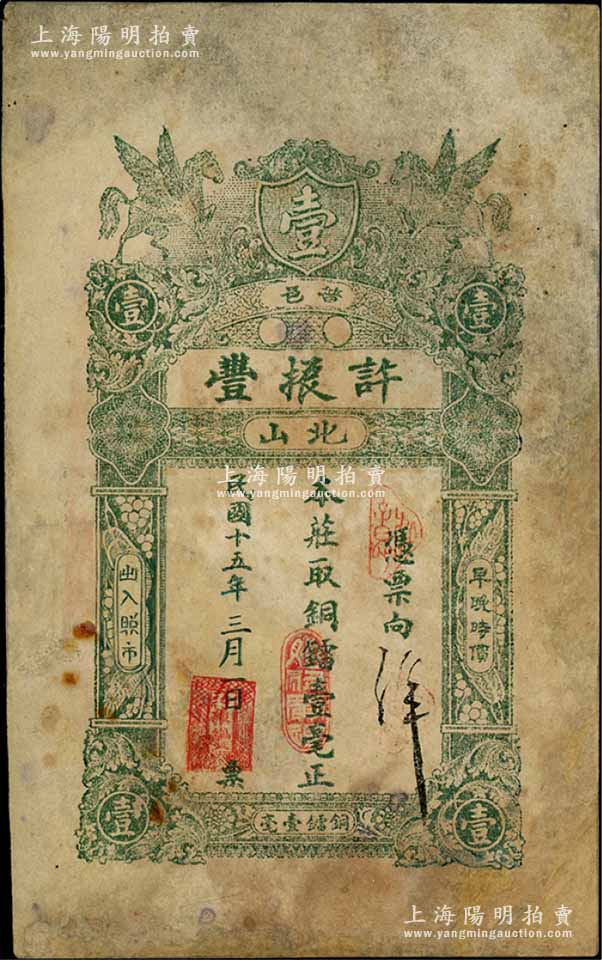 上海陽明拍賣
www.yangmingauction.com
壹
壹
壹
普邑
許振豐
北山
上海陽明拍賣
www.yangmingauction.com
憑票向
本莊取銅鐳壹毫正
民國十五年三月一日 票
早晚時價
出入照市
壹
壹
銅鐳壹毫
上海陽明拍賣
www.yangmingauction.com